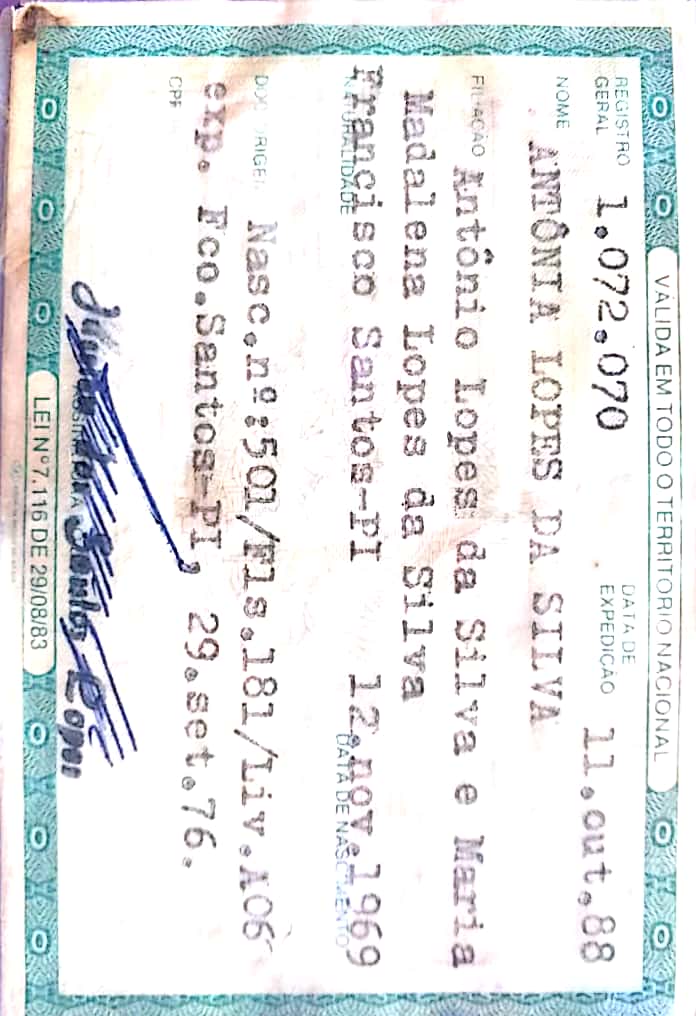 VÁLIDA EM TODO O TERRITÓRIO NACIONAL
REGISTRO GERAL 1.072.070 DATA DE EXPEDIÇÃO 11.out.88
NOME ANTÔNIA LOPES DA SILVA
FILIAÇÃO Antônio Lopes da Silva e Maria
Madalena Lopes da Silva
NATURALIDADE Francisco Santos-PI DATA DE NASCIMENTO 12.nov.1969
DOC ORIGEM Nasc.nº:501/Fls.181/Liv.A06
exp. Fco.Santos-PI, 29.set.76.
CPF
LEI Nº 7.116 DE 29/08/83